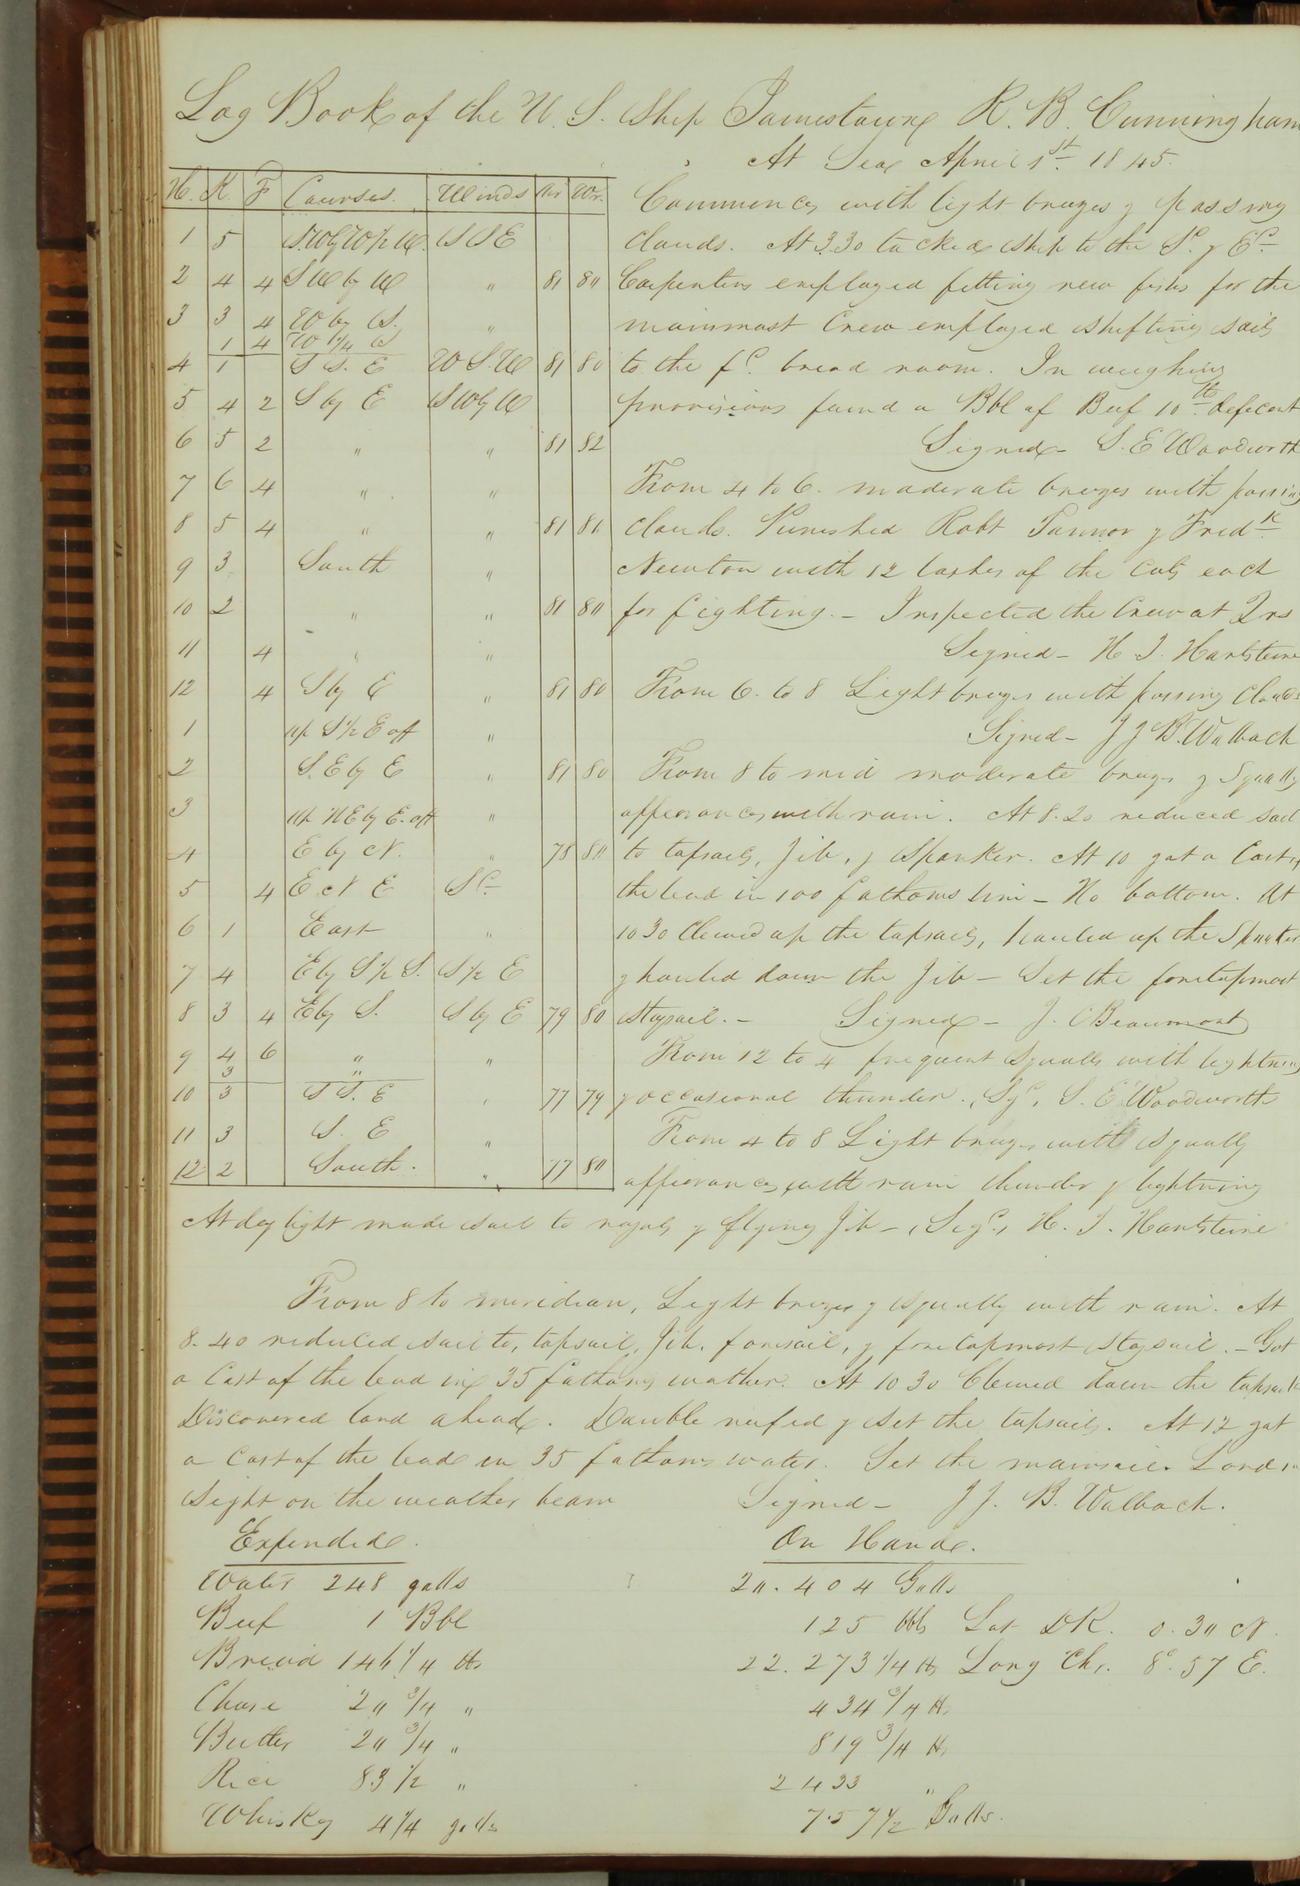 Log Book of the U. S. Ship Jamestown R. B. Cunningham
At Sea April 1st 1845.
H. K. F Courses. Winds Air Wr.
Commences with light breezes & passing
1 5 S.W by W½W. S S E
clouds. At 3.30 tacked ship to the Sd & Ed
2 4 4 S W by W " 81 80
Carpenters employed fitting new fishes for the
3 3 4 W by S. "
1 4 W ¼ S
mainmast Crew employed shifting sails
4 1 S S. E W S. W 81 80
to the fd. bread room. In weighing
5 4 2 S by E S W by W
provisions found a Bbl of Beef 10 lb deficent
6 5 2 " " 81 82
Signed - S. E Woodworth
7 6 4 " "
From 4 to 6. moderate breezes with passing
8 5 4 " " 81 81
clouds. Punished Robt Tannor & Fredk
9 3 South "
Newton with 12 lashes of the Cats each
10 2 " " 81 80
for fighting. - Inspected the Crew at Qrs
11 4 " "
Signed - H. J. Hartstene
12 4 S by E " 81 80
From 6. to 8 Light breezes with passing Clouds
1 up S½E off "
Signed - J J B. Walbach
2 S. E by E " 81 80
From 8 to mid moderate breezes & Squally
3 up N E by E. off "
appearances with rain. At 8.20 reduced sail
4 E by N. " 78 80
to topsails, Jib, & Spanker. At 10 got a Cast of
5 4 E N E Sd
the lead in 100 fathoms line - No bottom. At
6 1 East "
1030 Clewed up the topsails, hauled up the Spanker
7 4 E by S½S. S½E
& hauled down the Jib - Set the foretopmast
8 3 4 E by S. S by E 79 80
staysail. - Signed - J. C Beaumont
9 4 6 " "
3 "
From 12 to 4 frequent squalls with lightning
10 3 S S. E " 77 79
& occasional thunder. Sgd. S. E. Woodworth
11 3 S. E "
From 4 to 8 Light breezes with squally
12 2 South. " 77 80
appearances, with rain thunder & lightning
At day light made sail to royals & flying Jib - Sigd. H. J. Hartstene
From 8 to meridian, Light breezes & squally with rain. At
8.40 reduced sail to, topsails, Jib, foresail, & foretopmast staysail. - Got
a Cast of the lead in 35 fathoms water. At 1030 Clewed down the topsails
Discovered land ahead. Double reefed & set the topsails. At 12 got
a Cast of the lead in 35 fathoms water. Set the mainsail. Land in
sight on the weather beam Signed - J J. B. Walbach.
Expended. On Hand.
Water 248 galls 20.404 Galls
Beef 1 Bbl 125 bbls Lat DR. 0.30 N.
Bread 146¼ lbs 22.273¼ lbs Long Chr. 8°.57 E.
Chese 20¾ " 434¾ lbs
Butter 20¾ " 819¾ lbs
Rice 83½ " 2433 "
Whiskey 4¼ galls 757½ Galls.